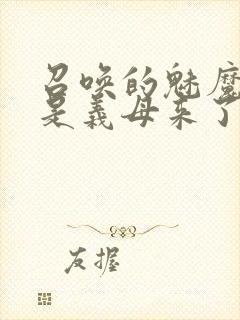 召唤的魅魔
是义母来了
友握